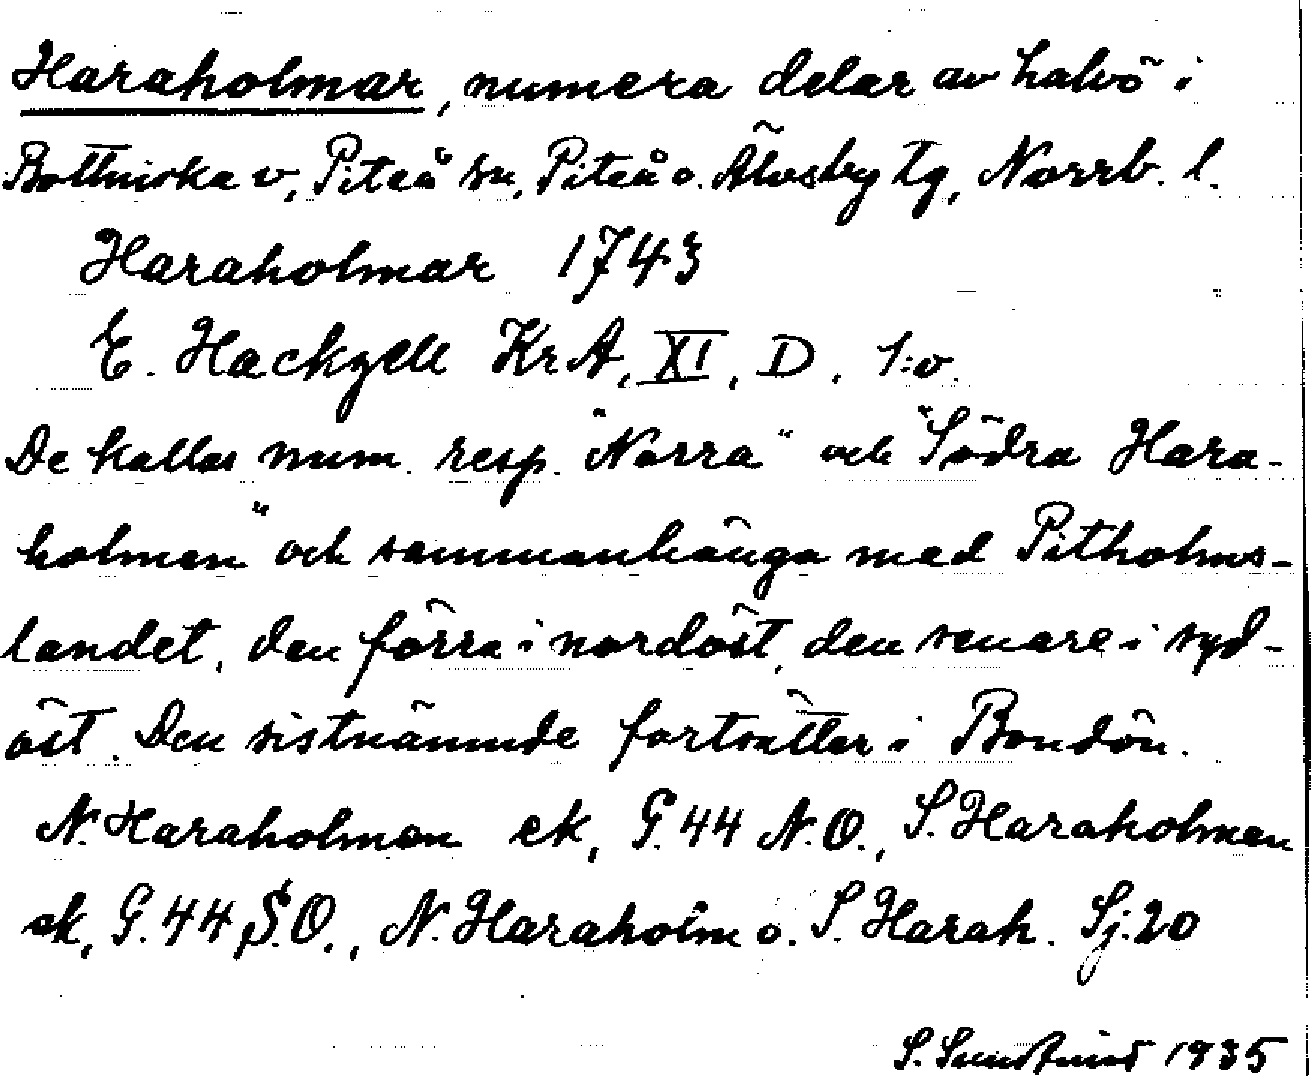 Haraholmar, numera delar av halvö i
Bottniska v, Piteå sn, Piteå o. Älvsby tg, Norrb. l.
Haraholmar 1743
E. Hackzell KrA, XI, D. 1:v.
De kallas num. resp. "Norra" och "Södra Hara-
holmen" och sammanhänga med Pitholms-
landet, den förra i nordöst, den senare i syd-
öst. Den sistnämnde fortsätter i Bondön.
N. Haraholmen ek, G. 44 N.O., S. Haraholmen
ek, G. 44, S.O., N. Haraholm o. S. Harah. Sj. 20
S. 1935